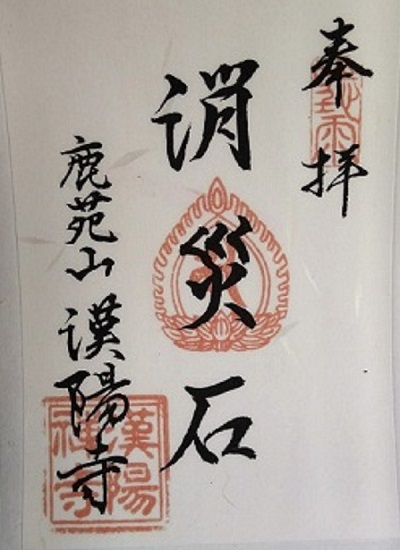 奉拝
消災石
鹿苑山漢陽寺
漢陽
禅寺